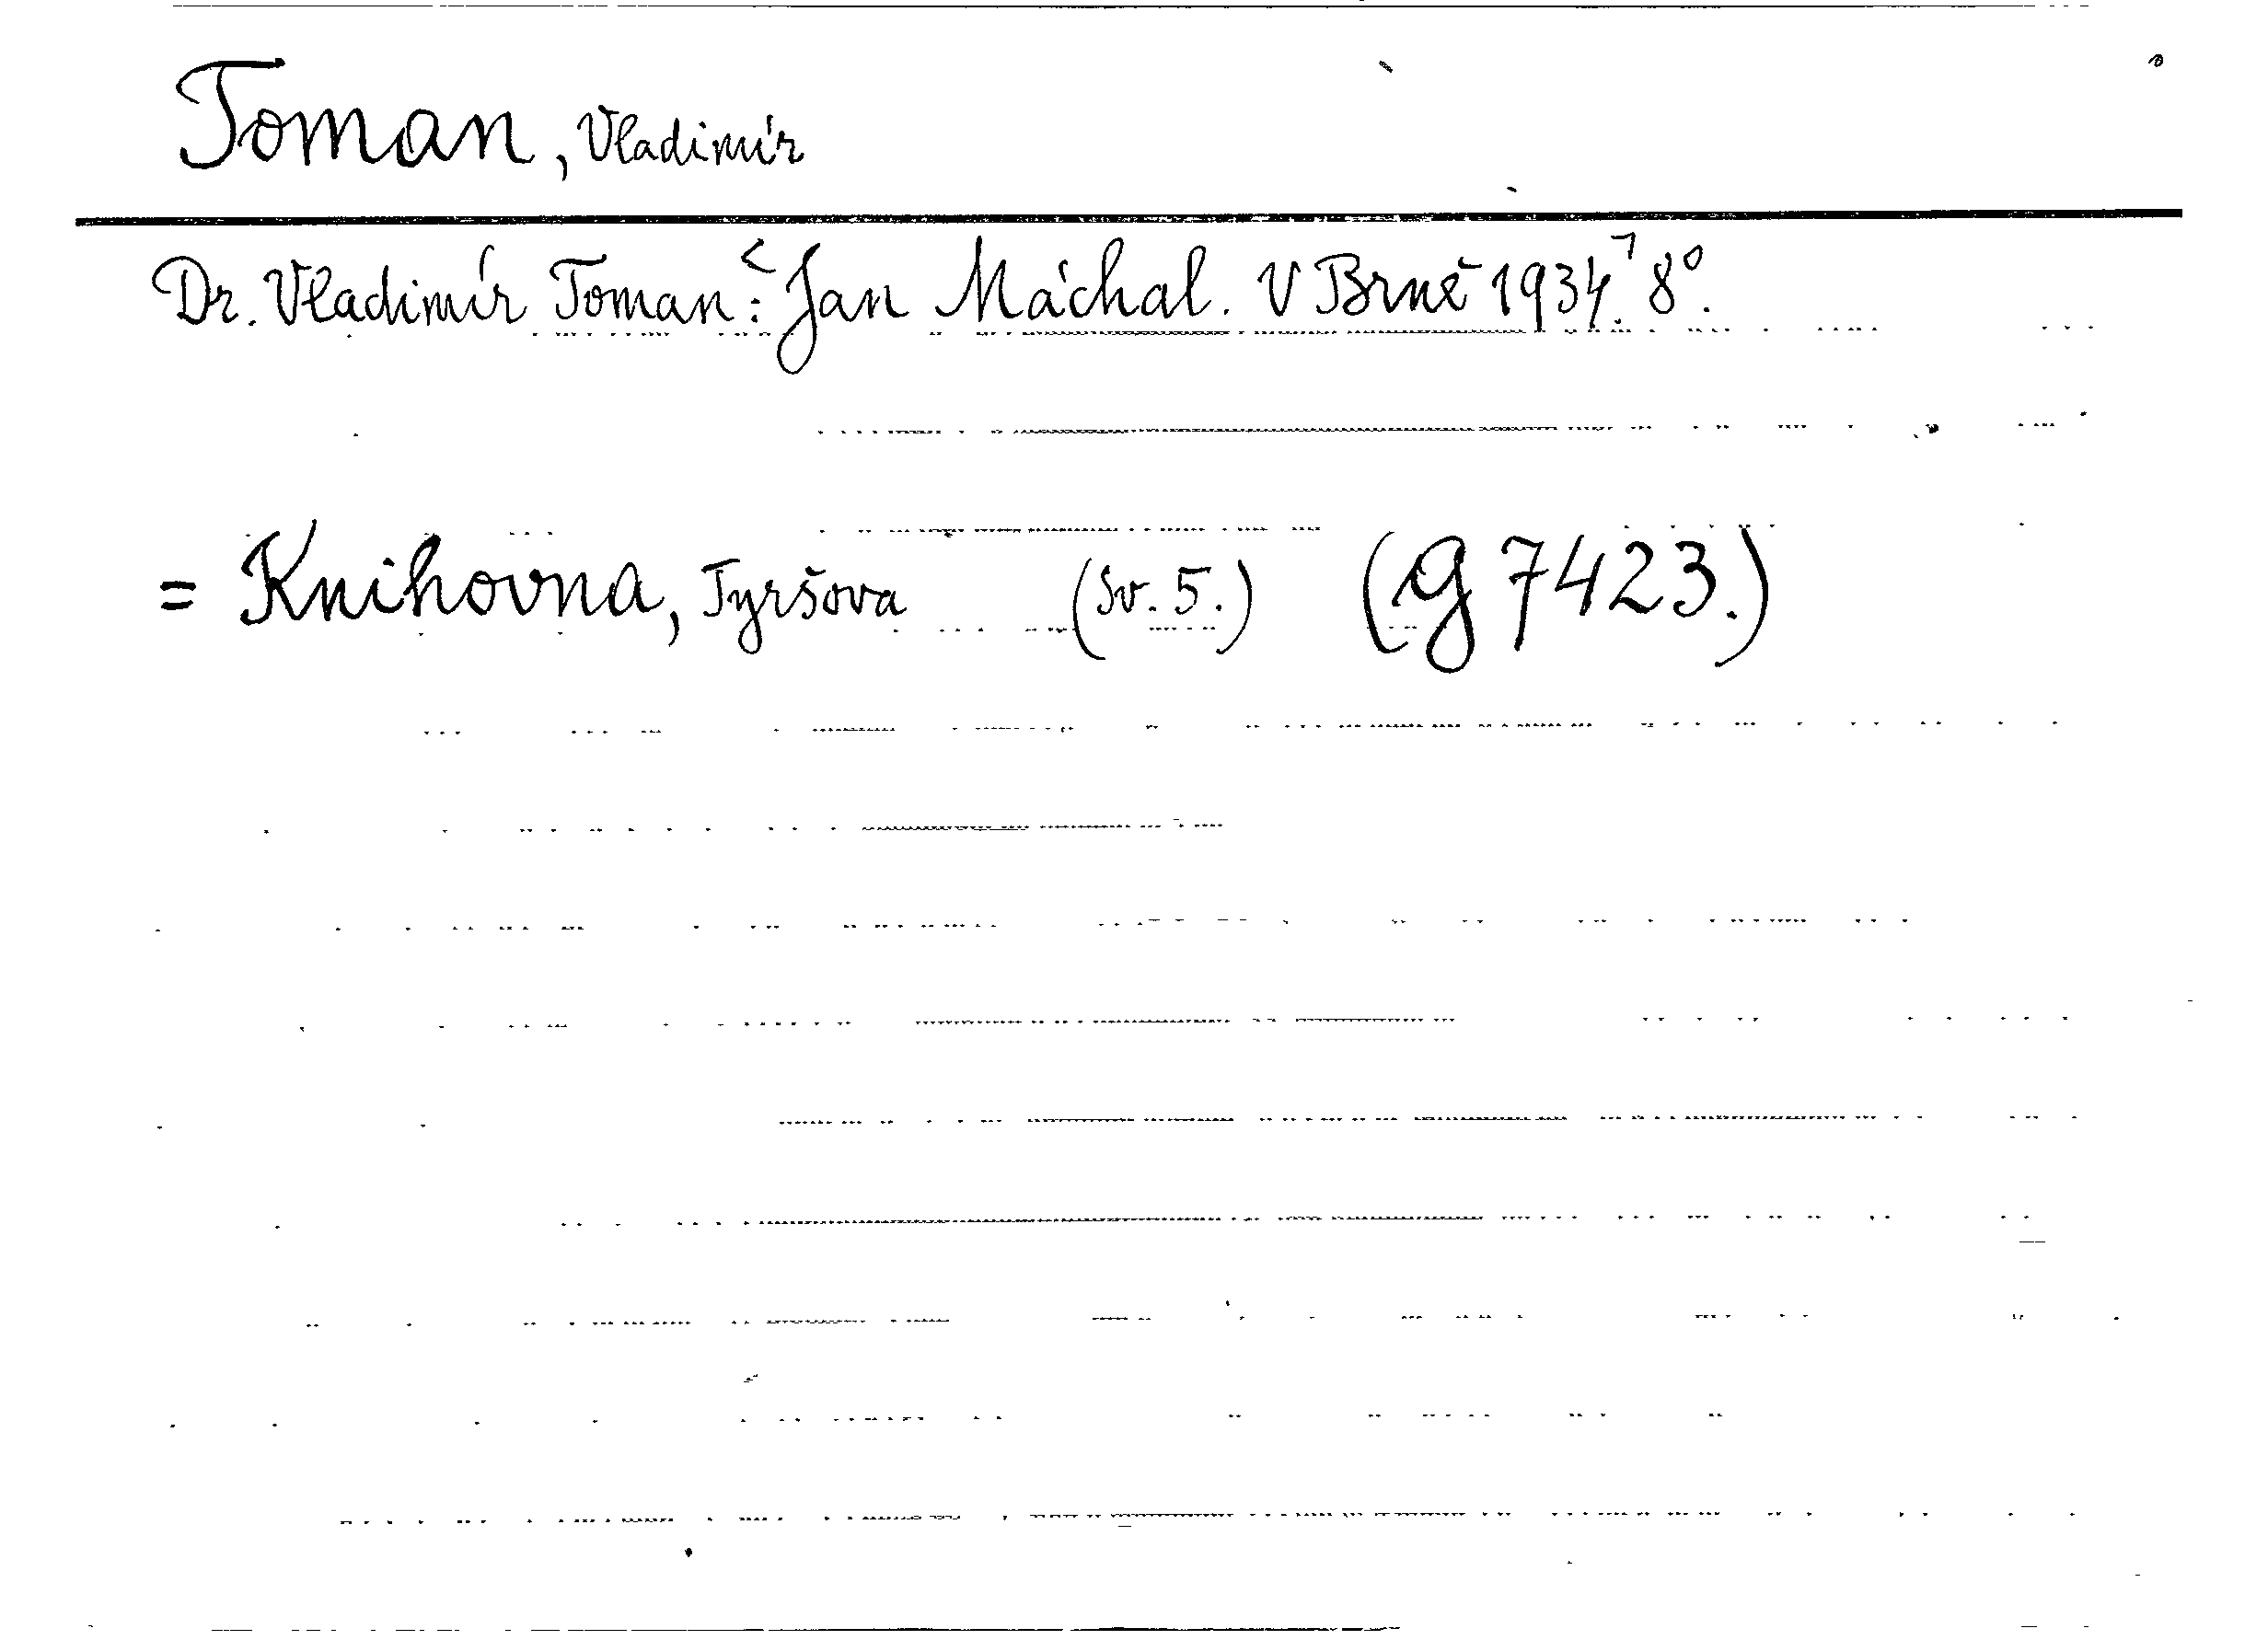 Toman, Vladimír
Dr. Vladimír Toman: Jan Máchal. V Brně 1934. 8°.
= Knihovna, Tyršova (sv. 5.) (g 7423.)